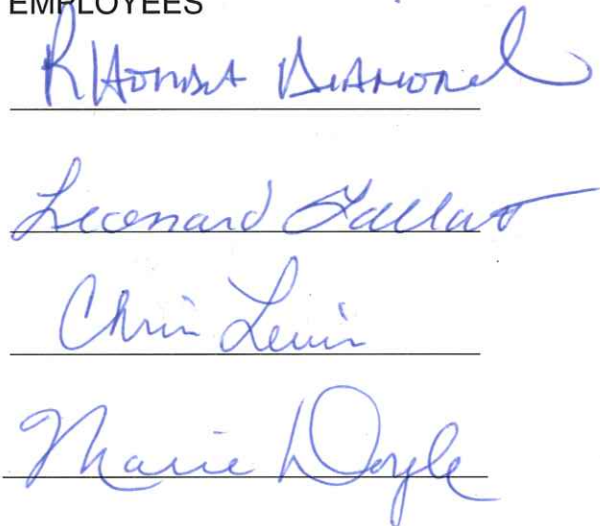 EMPLOYEES
Rhonda Diamond
Leonard Gallant
Chris Levin
Marie Doyle